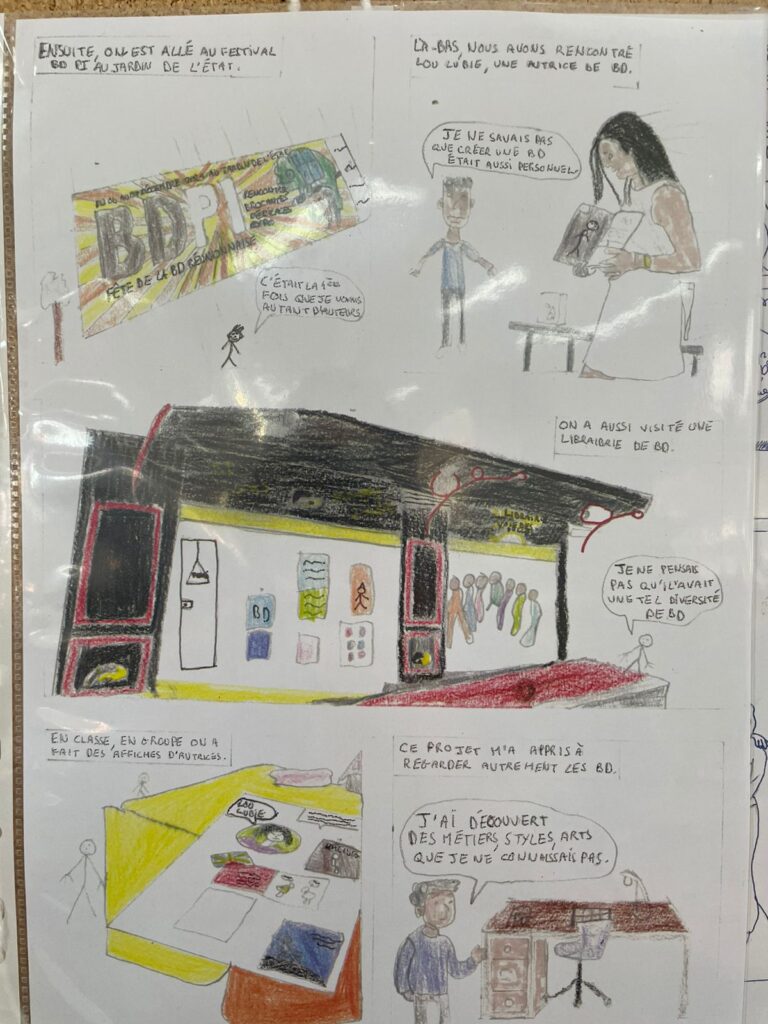 ENSUITE, ON EST ALLÉ AU FESTIVAL
BD PI AU JARDIN DE L'ÉTAT.
LÀ-BAS, NOUS AVONS RENCONTRÉ
LOU LUBIE, UNE AUTRICE DE BD.
JE NE SAVAIS PAS
QUE CRÉER UNE BD
ÉTAIT AUSSI PERSONNEL
AU JARDIN DE L'ÉTAT
BDPI
RENCONTRES
BROCANTES
DÉDICACES
FÊTE DE LA BD RÉUNIONNAISE
C'ÉTAIT LA 1ÈRE
FOIS QUE JE VOYAIS
AUTANT D'AUTEURS
ON A AUSSI VISITÉ UNE
LIBRAIRIE DE BD.
BD
JE NE PENSAIS
PAS QU'IL'AVAIT
UNE TEL DIVERSITÉ
DE BD
EN CLASSE, EN GROUPE ON A
FAIT DES AFFICHES D'AUTRICES.
LOU
LUBIE
CE PROJET M'A APPRIS À
REGARDER AUTREMENT LES BD.
J'AÏ DÉCOUVERT
DES MÉTIERS, STYLES, ARTS
QUE JE NE CONNAISSAIS PAS.